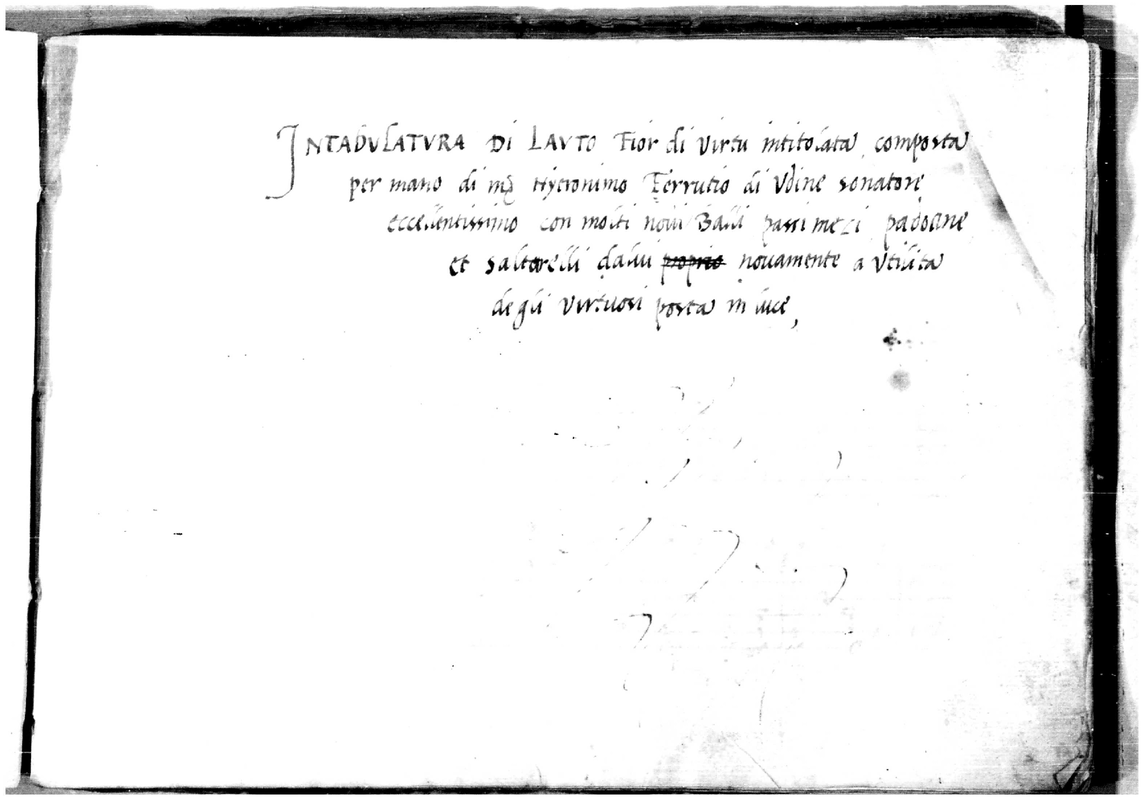 INTABULATURA DI LAVTO Fior di virtu intitolata composta
per mano di mº Hyeronimo Ferrutio di Vdine sonatore
eccellentissimo con molti novi Balli passi mezi padoane
et saltarelli dalui proprio nouamente a vtilita
degli virtuosi posta in luce,